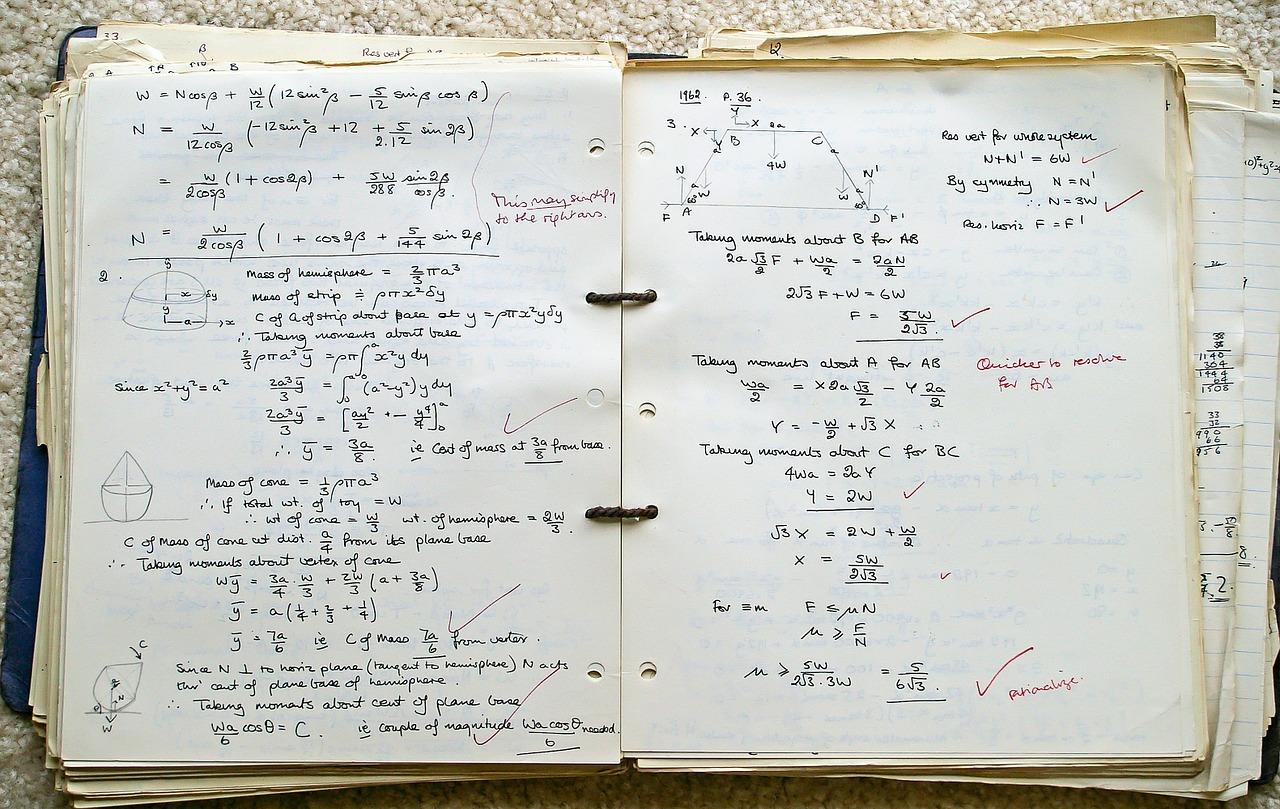 33
Res vert
W = Ncosβ + W/12 (12 sin²β − 5/12 sinβ cosβ)
N = W/12cosβ (−12sin²β + 12 + 5/2.12 sin2β)
= W/2cosβ (1 + cos2β) + 5W/288 sin2β/cosβ.
This may simplify
to the right ans.
N = W/2cosβ (1 + cos2β + 5/144 sin2β)
2.
Mass of hemisphere = 2/3 πa³
Mass of strip ≑ ρπx²δy
C of G of strip about base at y = ρπx²yδy
∴ Taking moments about base
2/3 ρπa³ȳ = ρπ∫₀ᵃ x²y dy
Since x²+y² = a² 2a³ȳ/3 = ∫₀ᵃ (a²−y²) y dy
2a³ȳ/3 = [ay²/2 + − y⁴/4]₀ᵃ
∴ ȳ = 3a/8 ie Cent of mass at 3a/8 from base.
Mass of cone = 1/3 ρπa³
∴ If total wt. of toy = W
∴ wt of cone = W/3 wt. of hemisphere = 2W/3.
C of Mass of cone at dist. a/4 from its plane base
∴ Taking moments about vertex of cone
Wȳ = 3a/4 · W/3 + 2W/3 (a + 3a/8)
ȳ = a(1/4 + 2/3 + 1/4)
ȳ = 7a/6 ie C of Mass 7a/6 from vertex.
Since N ⊥ to horiz plane (tangent to hemisphere) N acts
thro' cent of plane base of hemisphere.
∴ Taking moments about cent of plane base
Wa/6 cosθ = C. ie couple of magnitude Wa cosθ/6 needed.
1962. P. 36.
3.
X Y X 2a
B C
4W
N N'
W W
F A D F'
Res vert for whole system
N+N' = 6W
By symmetry N = N'
∴ N = 3W
Res. horiz F = F'
Taking moments about B for AB
2a √3/2 F + Wa/2 = 2aN/2
2√3 F + W = 6W
F = 5W/2√3.
Taking moments about A for AB
Quicker to resolve
for AB
Wa/2 = X 2a √3/2 − Y 2a/2
Y = −W/2 + √3 X
Taking moments about C for BC
4Wa = 2aY
Y = 2W
√3 X = 2W + W/2
X = 5W/2√3
For ≡m F ≤ μN
μ ≥ F/N
μ ≥ 5W/2√3.3W = 5/6√3.
rationalize.
38
38
1140
304
1444
64
1508
33
32
990
66